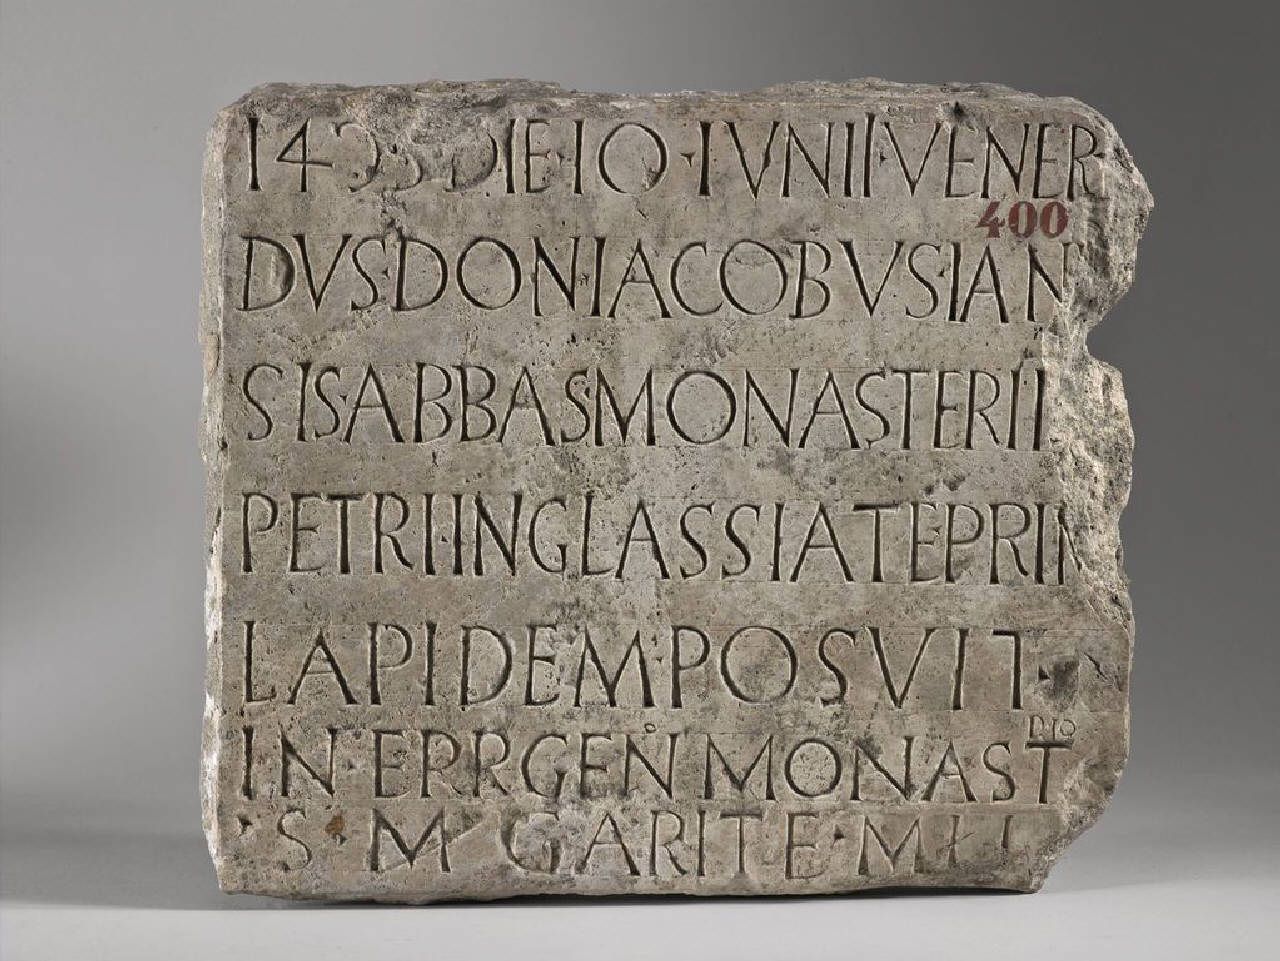 DIE·IO·IVNII·VENER
400
DVS·DON·IACOBVS·IAN
SIS·ABBAS·MONASTERII
PETRI·IN·GLASSIATE·PRI
LAPIDEM·POSVIT·
IN·ERRGEN̊ MONAST RIO
·S· MGARITE·M